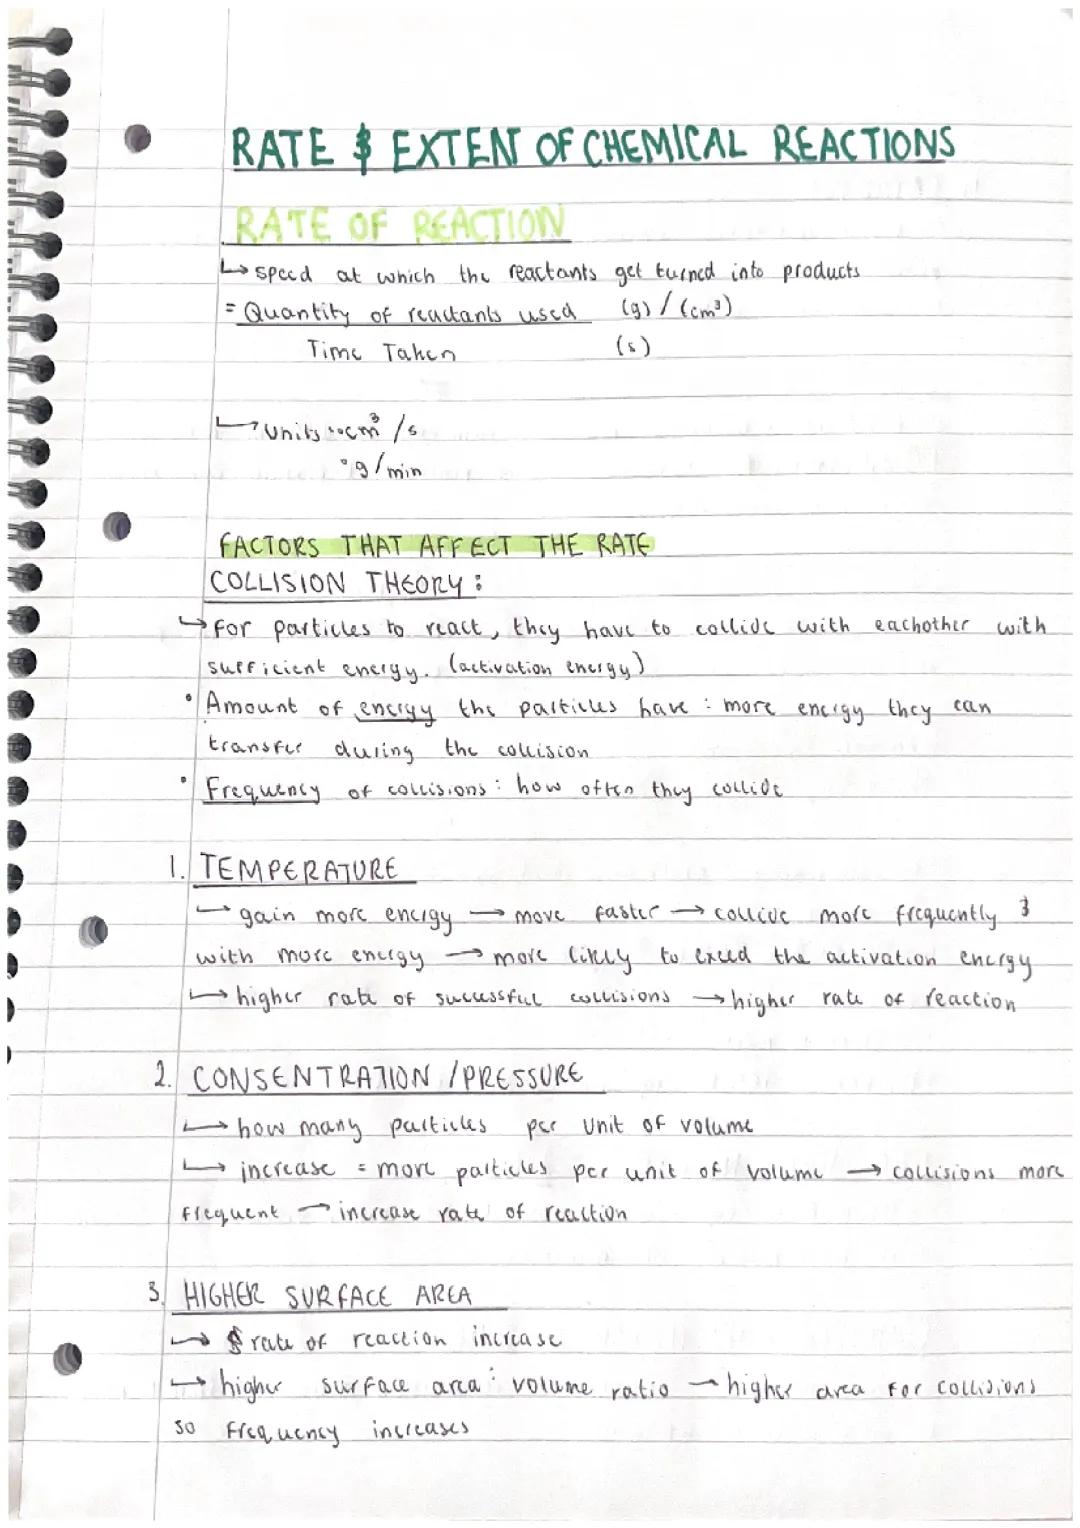 RATE & EXTENT OF CHEMICAL REACTIONS
RATE OF REACTION
↳ speed at which the reactants get turned into products
= Quantity of reactants used (g) / (cm³)
Time Taken (s)
↳ Units: • cm³ /s
• g/min
FACTORS THAT AFFECT THE RATE
COLLISION THEORY:
↳ For particles to react, they have to collide with eachother with
sufficient energy. (activation energy)
• Amount of energy the particles have: more energy they can
transfer during the collision
• Frequency of collisions: how often they collide
1. TEMPERATURE
↳ gain more energy → move faster → collide more frequently &
with more energy → more likely to exeed the activation energy
↳ higher rate of successful collisions → higher rate of reaction
2. CONSENTRATION / PRESSURE
↳ how many particles per unit of volume
↳ increase = more particles per unit of volume → collisions more
frequent → increase rate of reaction
3. HIGHER SURFACE AREA
↳ rate of reaction increase
↳ higher surface area: volume ratio → higher area for collisions
so frequency increases